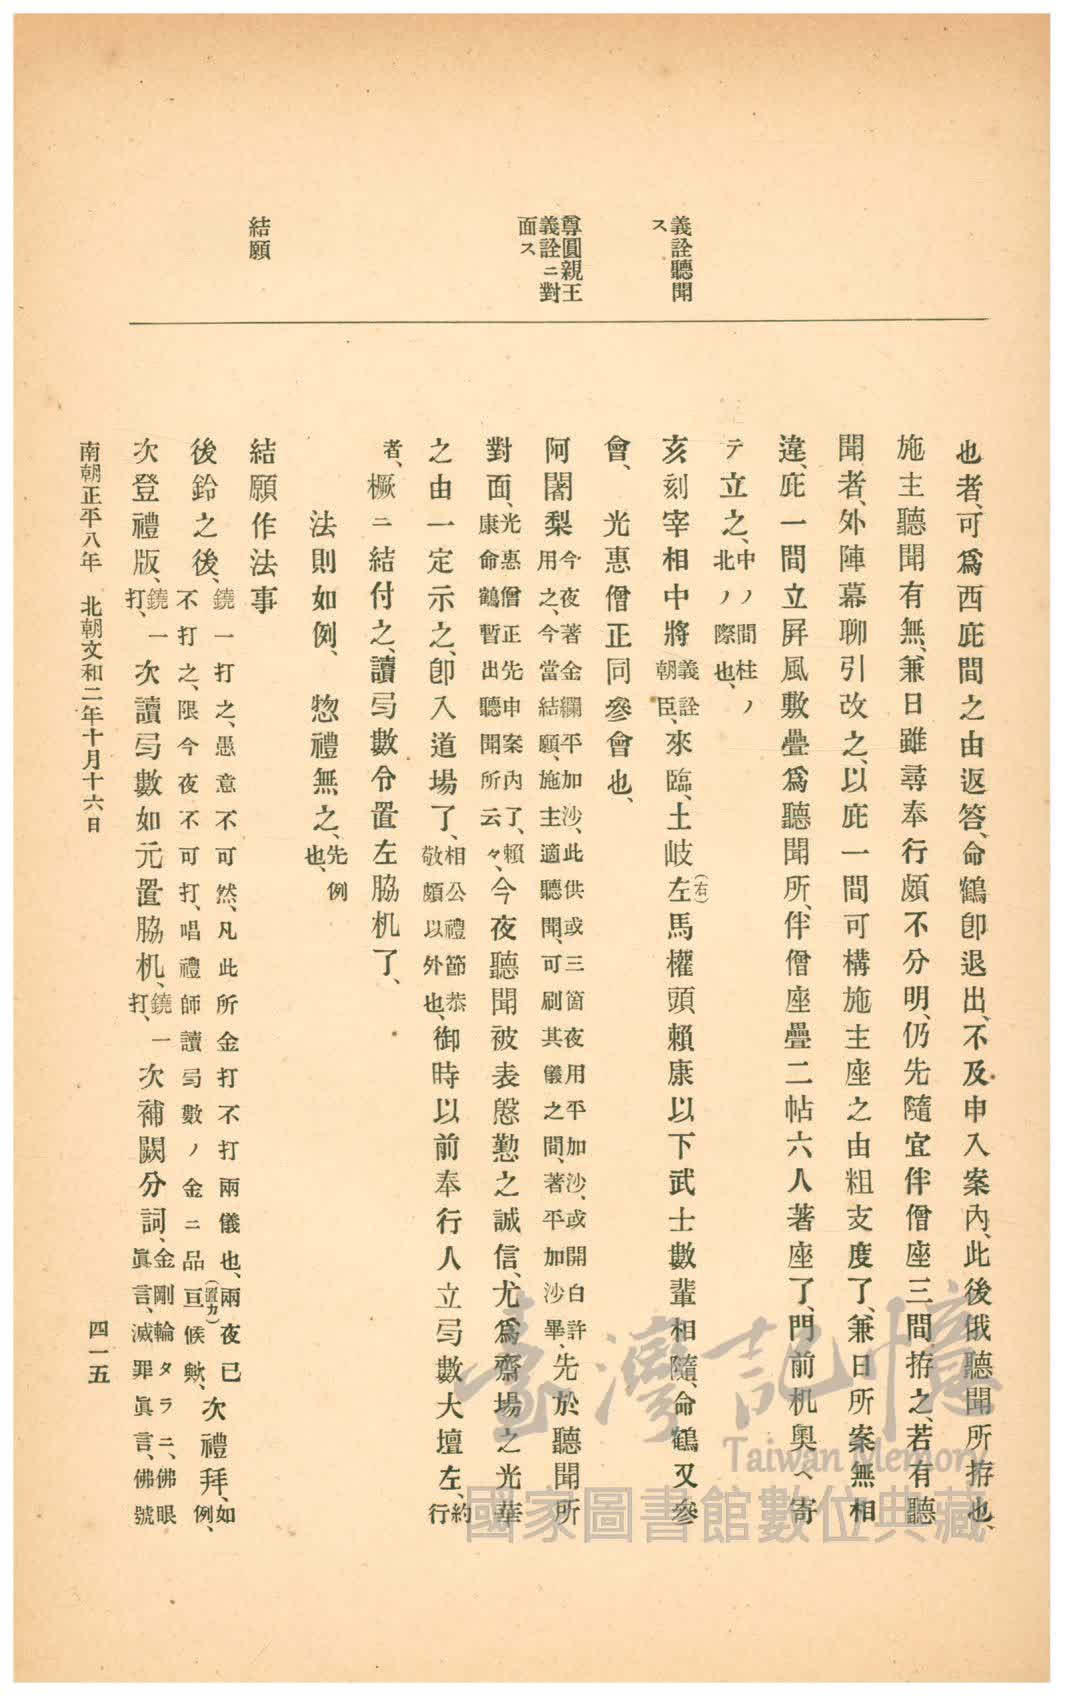 義詮聽聞
ス
尊圓親王
義詮ニ對
面ス
結願
也者、可爲西庇間之由返答、命鶴卽退出、不及申入案內、此後俄聽聞所拵也、
施主聽聞有無、兼日雖尋奉行頗不分明、仍先隨宜伴僧座三間拵之、若有聽
聞者、外陣幕聊引改之、以庇一間可構施主座之由粗支度了、兼日所案無相
違、庇一間立屛風敷疊爲聽聞所、伴僧座疊二帖六人著座了、門前机奧ヘ寄
テ立之、中ノ間柱ノ北ノ際也、
亥刻宰相中將義詮朝臣、來臨、土岐左(右)馬權頭賴康以下武士數輩相隨、命鶴又參
會、光惠僧正同參會也、
阿闍梨今夜著金襴平加沙、此供或三箇夜用平加沙、或開白許用之、今當結願、施主適聽聞、可刷其儀之間、著平加沙畢、先於聽聞所
對面、光惠僧正先申案內了、賴康命鶴暫出聽聞所云々、今夜聽聞被表慇懃之誠信、尤爲齋場之光華
之由一定示之、卽入道場了、相公禮節恭敬頗以外也、御時以前奉行人立㝵數大壇左、約行
者、橛ニ結付之、讀㝵數令置左脇机了、
法則如例、惣禮無之、先例也、
結願作法事
後鈴之後、鐃一打之、愚意不可然、凡此所金打不打兩儀也、兩夜已不打之、限今夜不可打、唱禮師讀㝵數ノ金ニ品亘(置カ)候歟、次禮拜、如例、
次登禮版、鐃一打、次讀㝵數如元置脇机、鐃一打、次補闕分詞、金剛輪タラニ、佛眼眞言、滅罪眞言、佛號
南朝正平八年 北朝文和二年十月十六日
四一五
臺灣記憶
Taiwan Memory
國家圖書館數位典藏